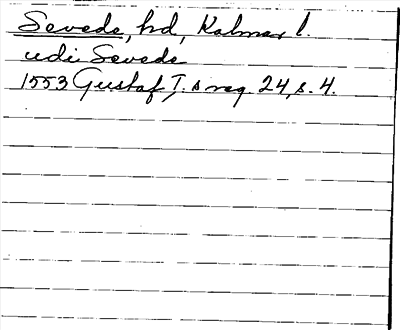 Sevede, hd, Kalmar l.
udi Sevede
1553 Gustaf I:s reg. 24, s. 4.